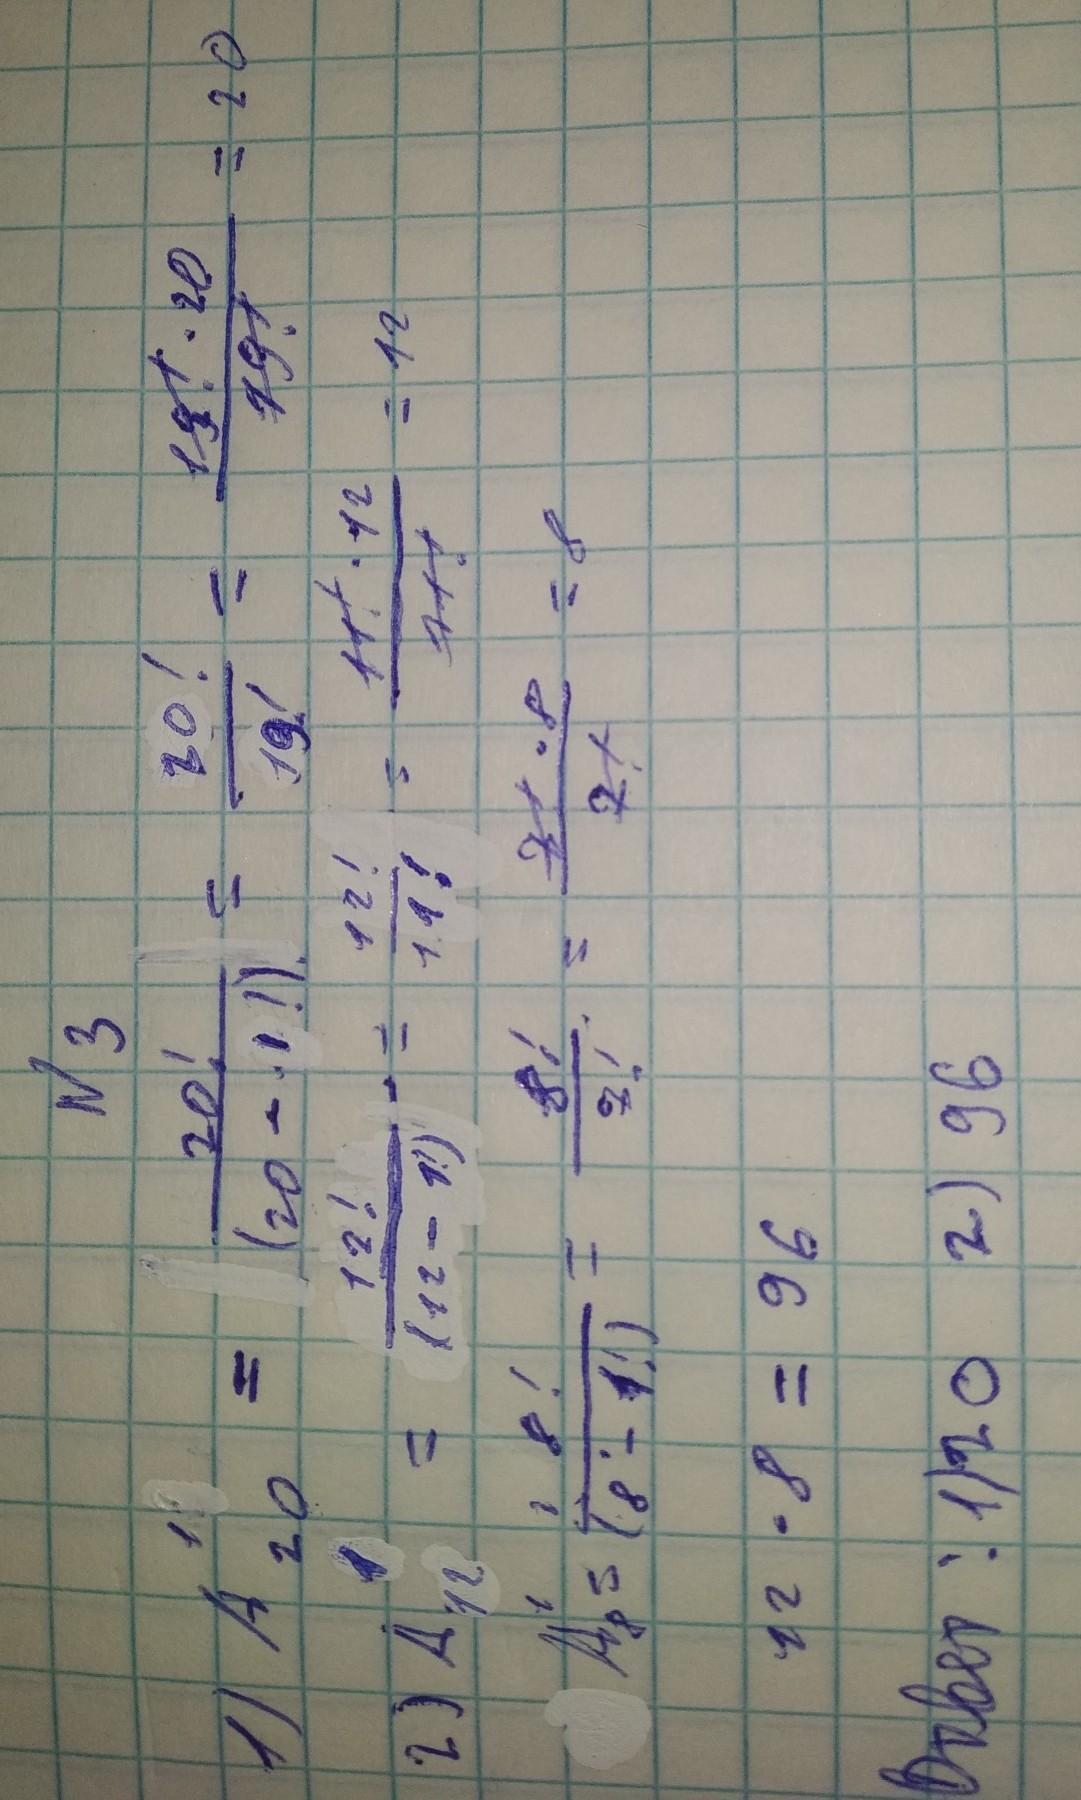 N 3
1) A¹₂₀ = 20!/(20-1!) = 20!/19! = 19!·20/19! = 20
2) A¹₁₂ = 12!/(12-1!) = 12!/11! = 11!·12/11! = 12
A¹₈ = 8!/(8-1!) = 8!/7! = 7!·8/7! = 8
12 · 8 = 96
Ответ : 1) 20 2) 96